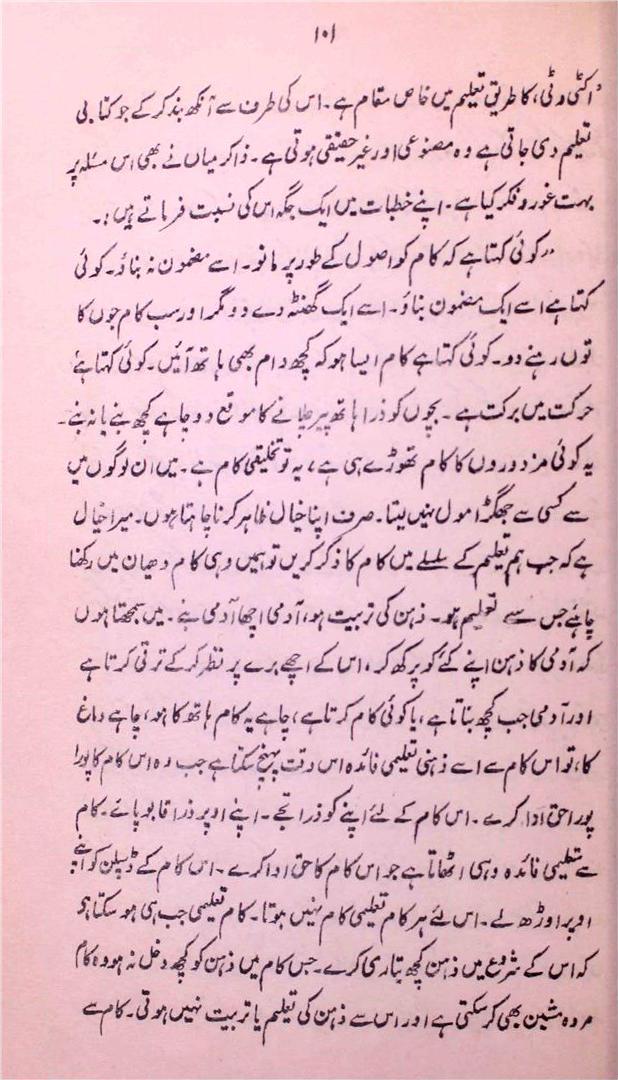 ۱۰۱
'اکٹی وٹی، کا طریقِ تعلیم میں خاص مقام ہے۔ اس کی طرف سے آنکھ بند کر کے جو کتابی
تعلیم دی جاتی ہے وہ مصنوعی اور غیر حقیقی ہوتی ہے۔ ذاکر میاں نے بھی اس مسئلہ پر
بہت غور و فکر کیا ہے۔ اپنے خطبات میں ایک جگہ اس کی نسبت فرماتے ہیں:۔
”کوئی کہتا ہے کہ کام کو اصول کے طور پر مانو۔ اسے مضمون نہ بناؤ۔ کوئی
کہتا ہے اسے ایک مضمون بناؤ۔ اسے ایک گھنٹہ دے دو مگر اور سب کام جوں کا
توں رہنے دو۔ کوئی کہتا ہے کام ایسا ہو کہ کچھ دام بھی ہاتھ آئیں۔ کوئی کہتا ہے
حرکت میں برکت ہے۔ بچوں کو ذرا ہاتھ پیر چلانے کا موقع دو چاہے کچھ بنے یا نہ بنے۔
یہ کوئی مزدوروں کا کام تھوڑے ہی ہے، یہ تو تخلیقی کام ہے۔ میں ان لوگوں میں
سے کسی سے جھگڑا مول نہیں لیتا۔ صرف اپنا خیال ظاہر کرنا چاہتا ہوں۔ میرا خیال
ہے کہ جب ہم تعلیم کے سلسلے میں کام کا ذکر کریں تو ہمیں وہی کام دھیان میں رکھنا
چاہئے جس سے تعلیم ہو۔ ذہن کی تربیت ہو، آدمی اچھا آدمی بنے۔ میں سمجھتا ہوں
کہ آدمی کا ذہن اپنے کئے کو پرکھ کر، اس کے اچھے برے پر نظر کر کے ترقی کرتا ہے
اور آدمی جب کچھ بناتا ہے، یا کوئی کام کرتا ہے، چاہے یہ کام ہاتھ کا ہو، چاہے دماغ
کا، تو اس کام سے اسے ذہنی تعلیمی فائدہ اس وقت پہنچ سکتا ہے جب وہ اس کام کا پورا
پورا حق ادا کرے۔ اس کام کے لئے اپنے کو ذرا تجے۔ اپنے اوپر ذرا قابو پائے۔ کام
سے تعلیمی فائدہ وہی اٹھاتا ہے جو اس کام کا حق ادا کرے۔ اس کام کے ڈسپلن کو اپنے
اوپر اوڑھ لے۔ اس لئے ہر کام تعلیمی کام نہیں ہوتا۔ کام تعلیمی جب ہی ہو سکتا ہے
کہ اس کے شروع میں ذہن کچھ تیاری کرے۔ جس کام میں ذہن کو کچھ دخل نہ ہو وہ کام
مردہ مشین بھی کر سکتی ہے اور اس سے ذہن کی تعلیم یا تربیت نہیں ہوتی۔ کام سے